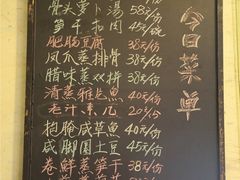 骨头萝卜汤 58元/份
笋干扣肉 45元/碗
肥肠豆腐 38元/份
凤爪蒸排骨 38元/份
腊味蒸双拼 38元/份
清蒸雅片鱼 40元/份
老汁素几 20元/5
抱腌咸草鱼 40元/份
咸脚圆土豆 45元/份
卷鲜蒸笋干 38元/份
今日菜单